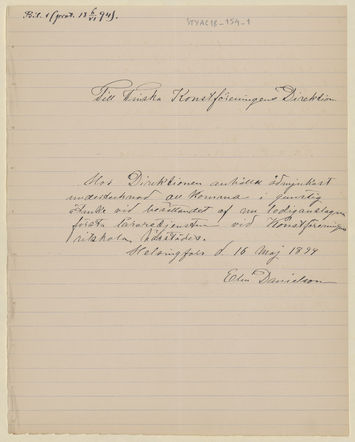 STYAC18-154-1
Till Finska Konstföreningens Direktion
Hos Direktionen anhåller ödmjukast
undertecknad att komma i gunstig
åtanke vid besättandet af nu lediganslagna
första lärare tjensten vid Konstföreningens
ritskola härstädes.
Helsingfors d. 15 Maj 1894
Elin Danielson